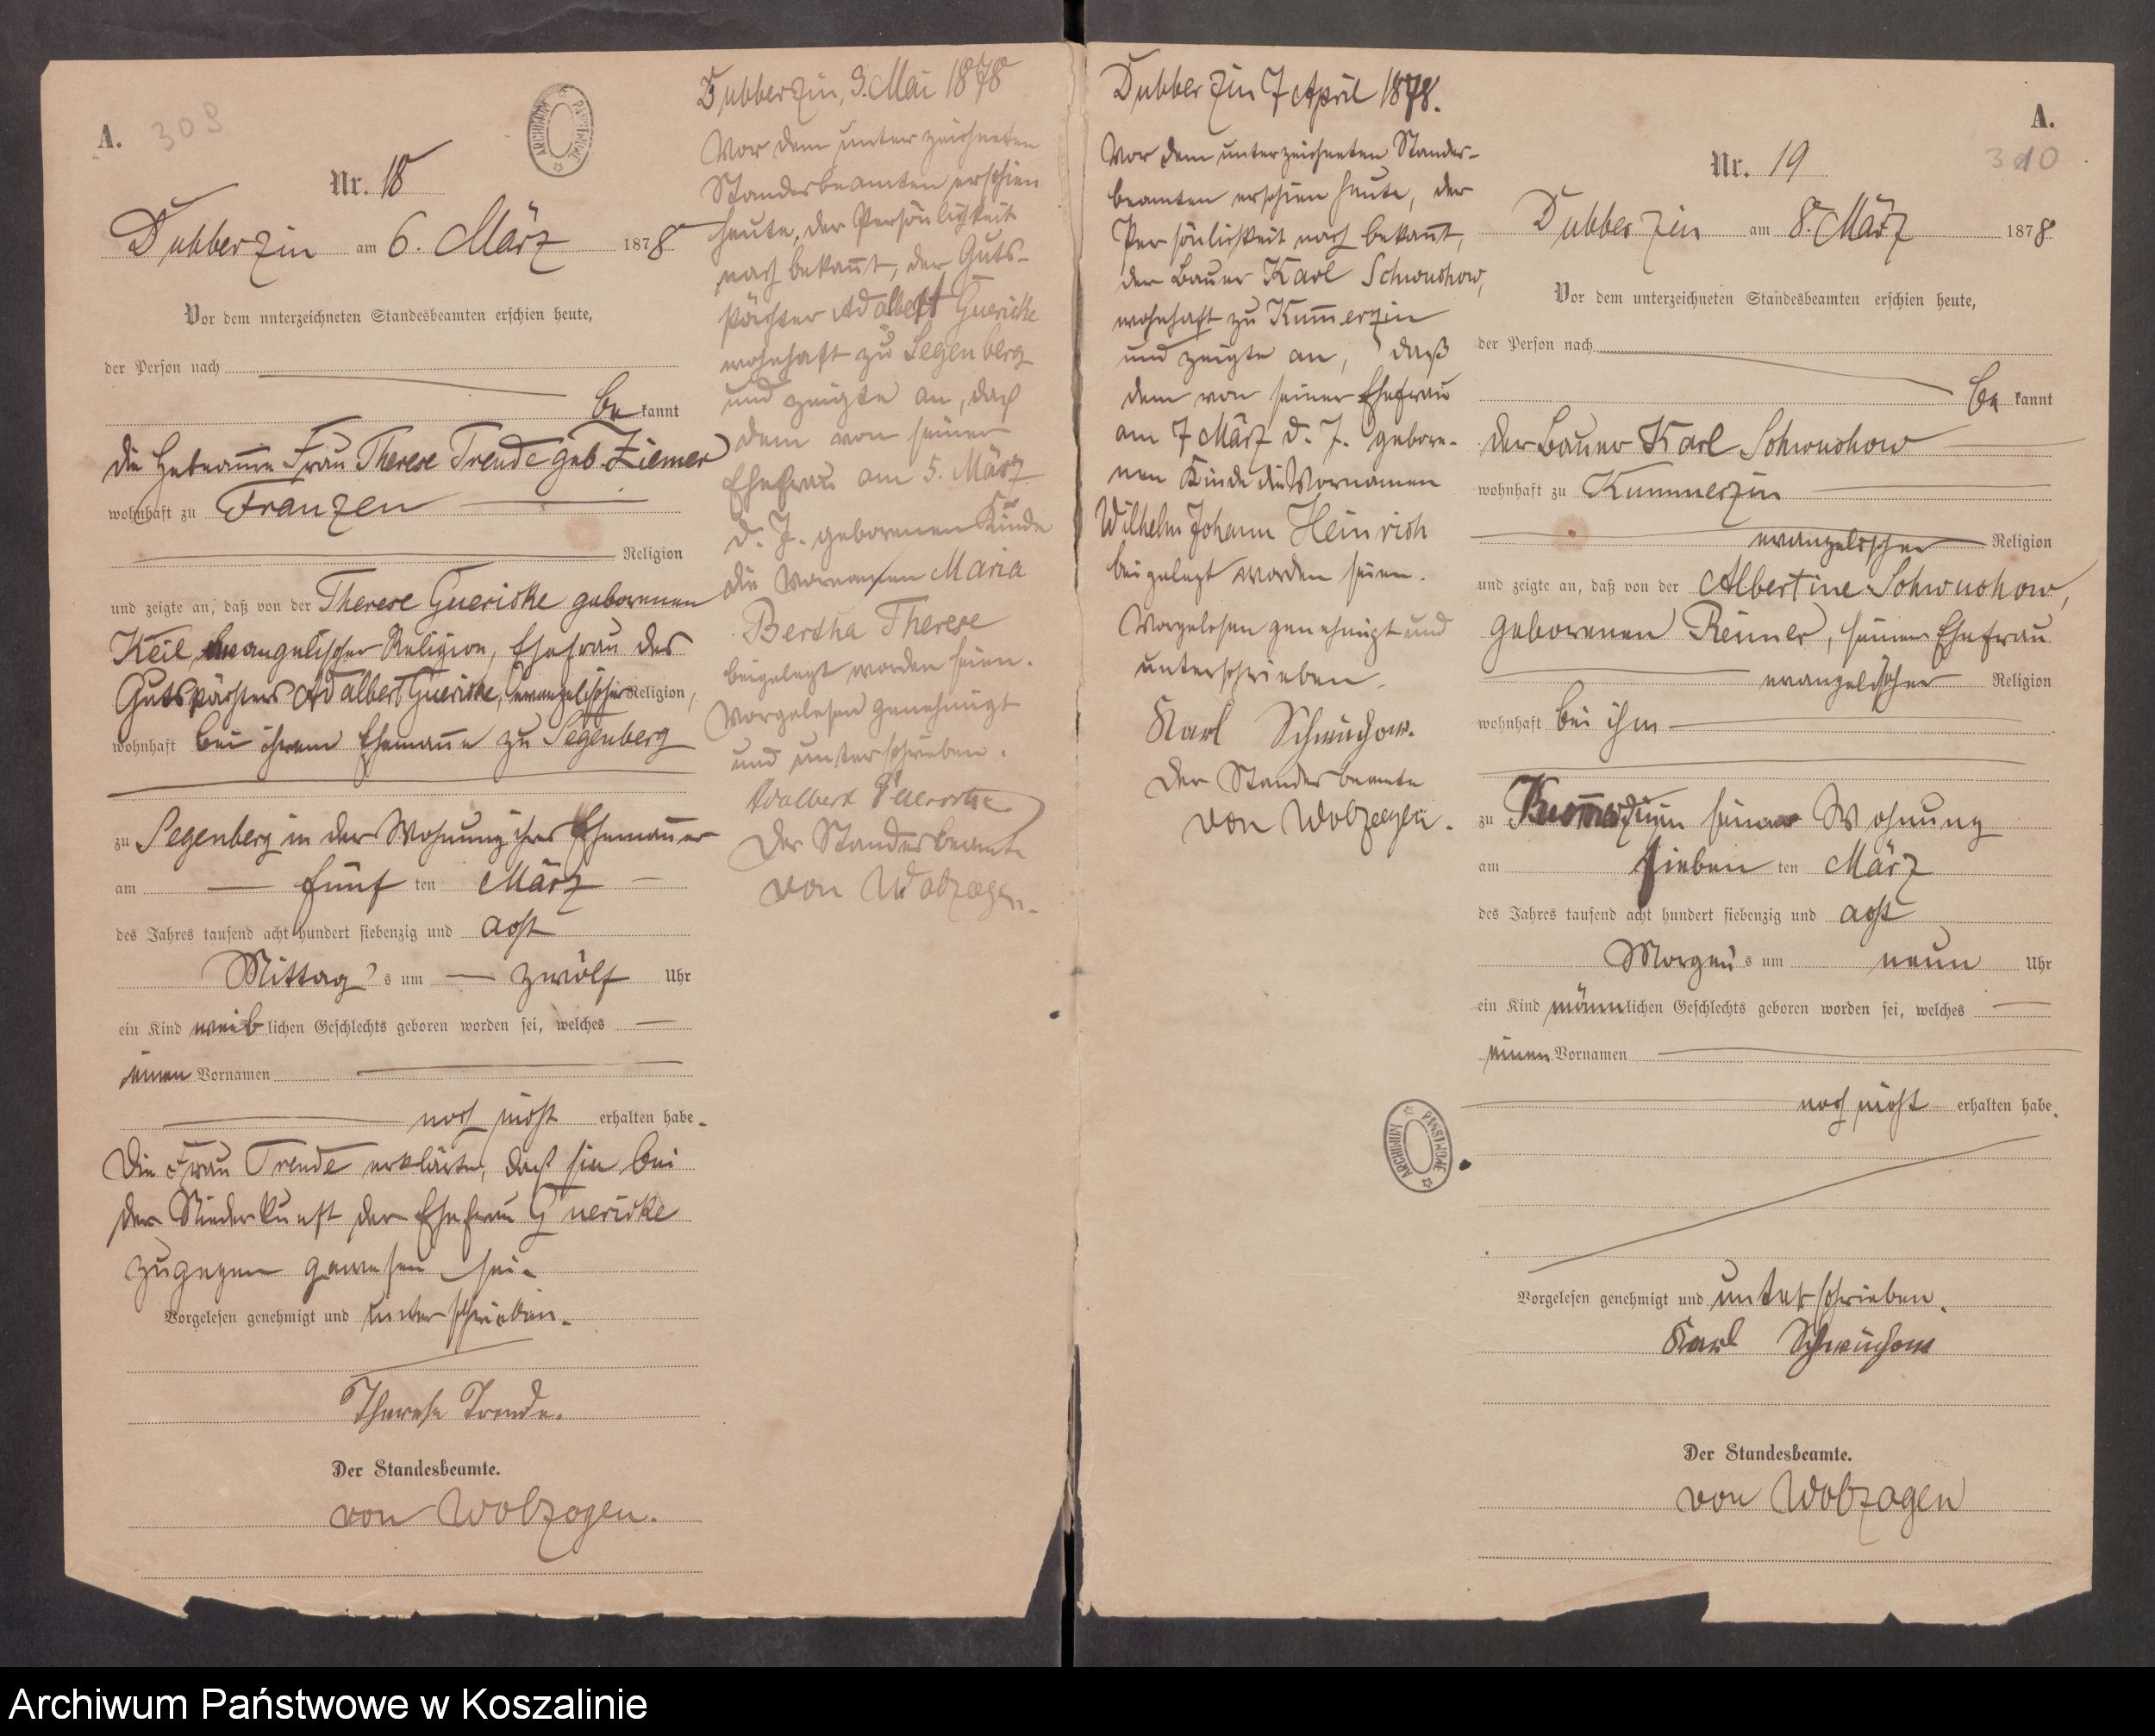 A.
309
ARCHIWUM PAŃSTWOWE
Nr. 18
Dubberzin am 6. März 1878
Vor dem unterzeichneten Standesbeamten erschien heute,
der Person nach
bekannt
die Hebeamme Frau Therese Trende geb. Ziemer
wohnhaft zu Franzen
Religion
und zeigte an, daß von der Therese Guericke geborenen
Keil, evangelischer Religion, Ehefrau des
Gutspächters Adalbert Guericke, evangelischer Religion,
wohnhaft bei ihrem Ehemanne zu Segenberg
zu Segenberg in der Wohnung ihres Ehemannes
am fünften März
des Jahres tausend acht hundert siebenzig und acht
Mittags um zwölf Uhr
ein Kind weiblichen Geschlechts geboren worden sei, welches
einen Vornamen
noch nicht erhalten habe.
Die Frau Trende erklärte, daß sie bei
der Niederkunft der Ehefrau Guericke
zugegen gewesen sei.
Vorgelesen genehmigt und unterschrieben.
Therese Trende.
Der Standesbeamte.
von Wobzogen.
Dubberzin, 3. Mai 1878
Vor dem unterzeichneten
Standesbeamten erschien
heute, der Persönlichkeit
nach bekañt, der Guts-
pächter Adalbert Guericke
wohnhaft zu Segenberg
und zeigte an, daß
dem von seiner
Ehefrau am 5. März
d. J. geborenen Kinde
die Vornamen Maria
Bertha Therese
beigelegt worden seien.
Vorgelesen genehmigt
und unterschrieben.
Adalbert Guericke
Der Standesbeamte
von Wobzogen.
Dubberzin 7 April 1878.
Vor dem unterzeichneten Standes-
beamten erschien heute, der
Persönlichkeit nach bekañt,
der Bauer Karl Schwuchow,
wohnhaft zu Kum̄erzin
und zeigte an, daß
dem von seiner Ehefrau
am 7 März d. J. gebore-
nen Kinde die Vornamen
Wilhelm Johann Heinrich
beigelegt worden seien.
Vorgelesen genehmigt und
unterschrieben.
Karl Schwuchow.
Der Standesbeamte
von Wobzogen.
A.
310
Nr. 19
Dubberzin am 8. März 1878
Vor dem unterzeichneten Standesbeamten erschien heute,
der Person nach
bekannt
der Bauer Karl Schwuchow
wohnhaft zu Kummerzin
evangelischer Religion
und zeigte an, daß von der Albertine Schwuchow,
geborenen Reimer, seiner Ehefrau
evangelischer Religion
wohnhaft bei ihm
zu Kum̄erzin seiner Wohnung
am siebenten März
des Jahres tausend acht hundert siebenzig und acht
Morgens um neun Uhr
ein Kind männlichen Geschlechts geboren worden sei, welches
einen Vornamen
noch nicht erhalten habe.
ARCHIWUM PAŃSTWOWE
Vorgelesen genehmigt und unterschrieben.
Karl Schwuchow
Der Standesbeamte.
von Wobzogen
Archiwum Państwowe w Koszalinie